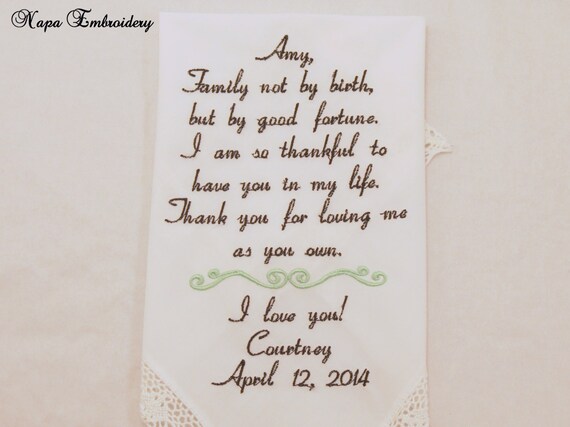 Napa Embroidery
Amy,
Family not by birth,
but by good fortune.
I am so thankful to
have you in my life.
Thank you for loving me
as you own.
I love you!
Courtney
April 12, 2014